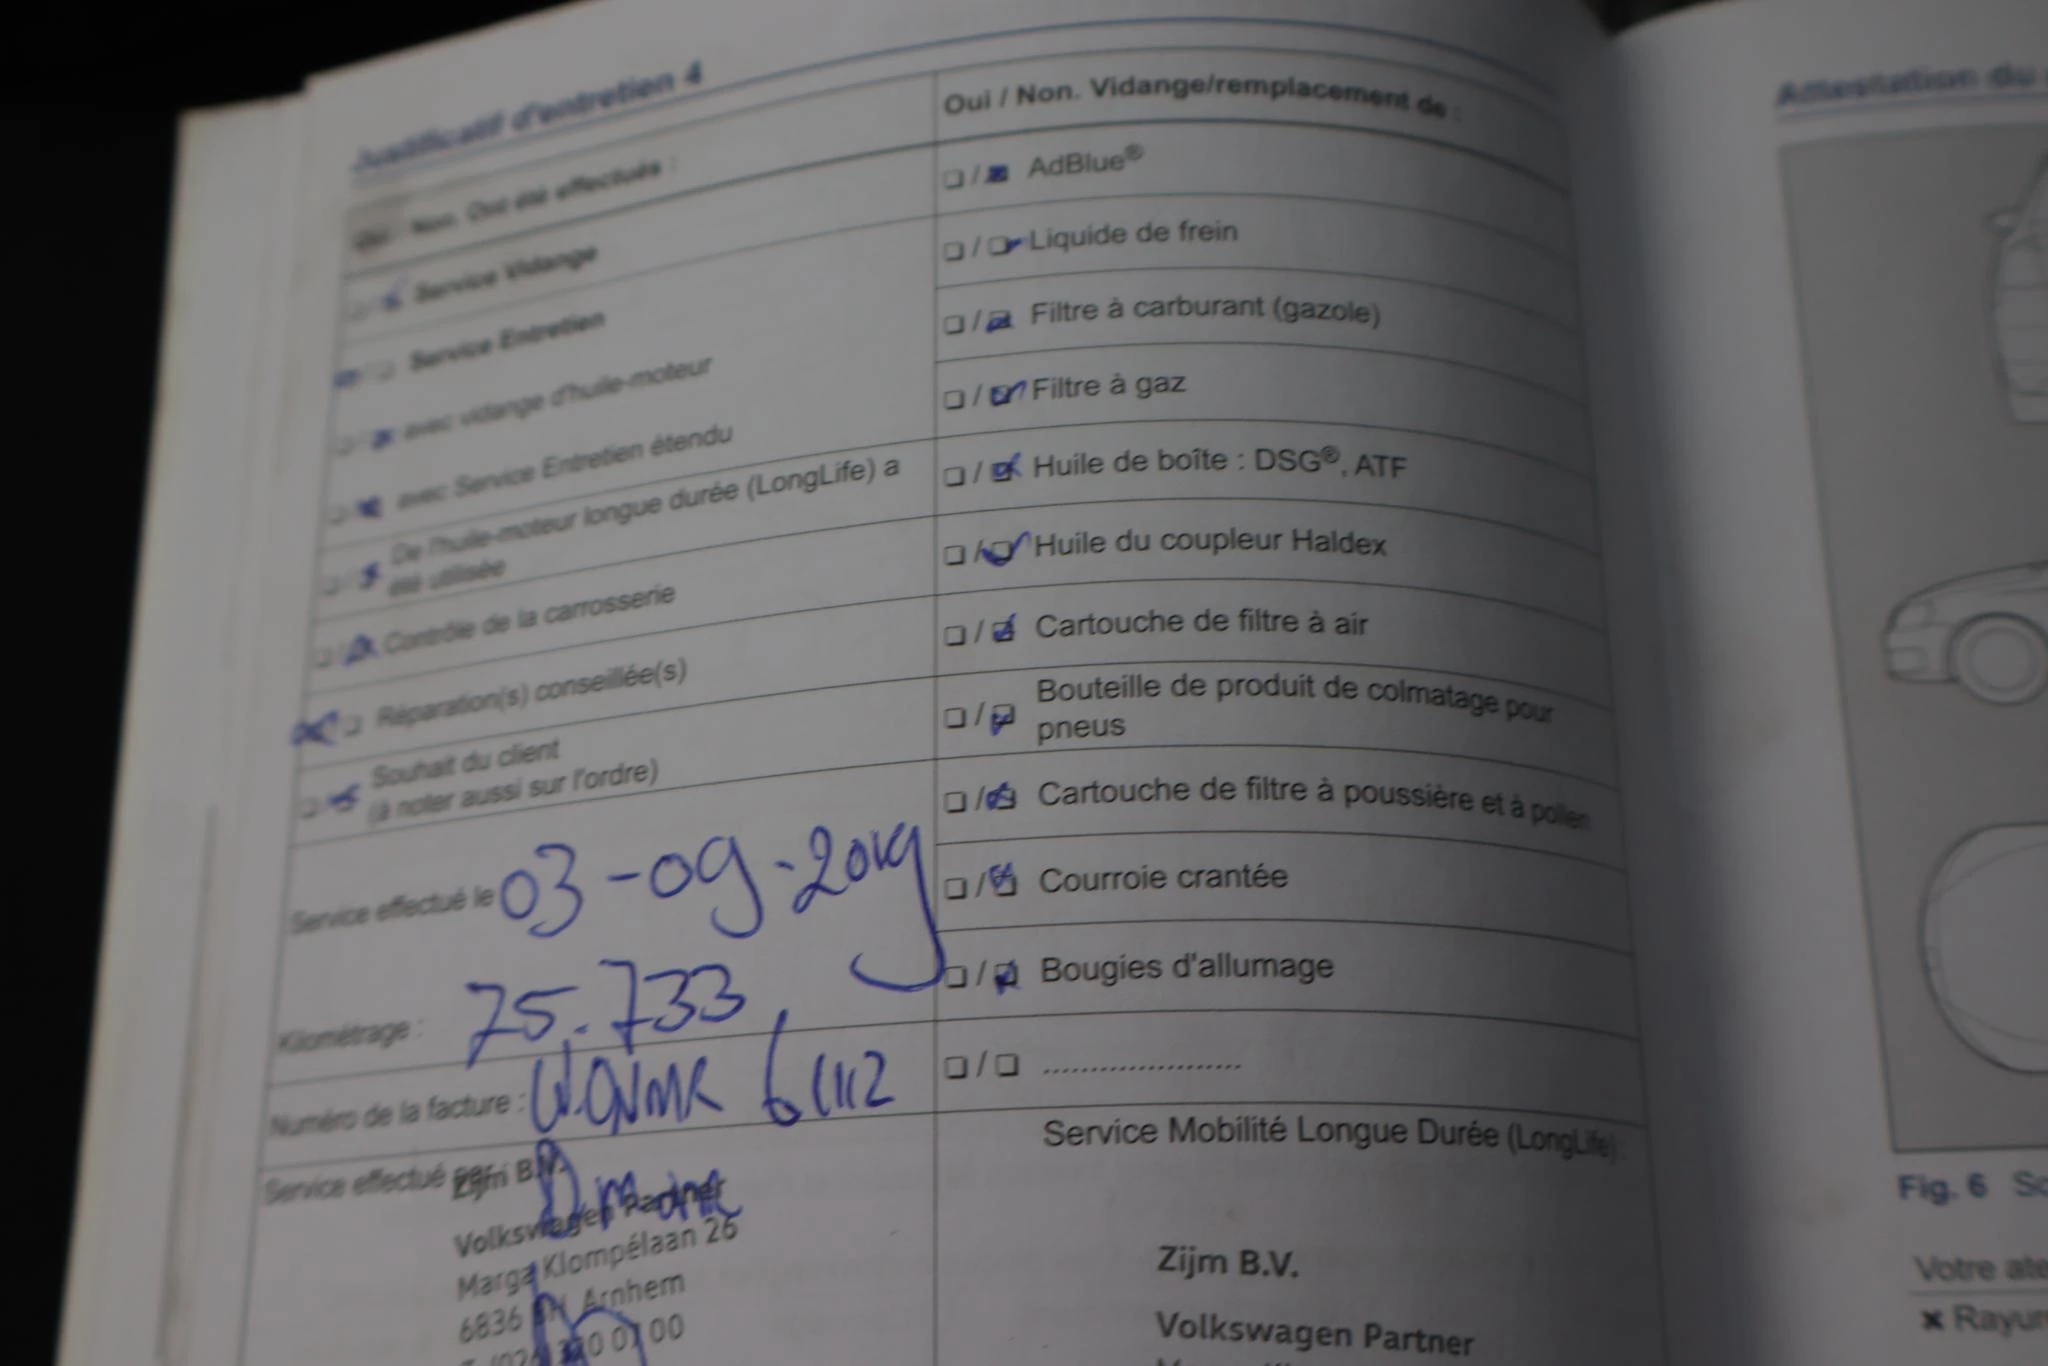 Justificatif d'entretien 4
Oui / Non. Ont été effectués :
Service Vidange
Service Entretien
avec vidange d'huile-moteur
avec Service Entretien étendu
De l'huile-moteur longue durée (LongLife) a
été utilisée
Contrôle de la carrosserie
Réparation(s) conseillée(s)
Souhait du client
(à noter aussi sur l'ordre)
Service effectué le 03-09-2019
Kilométrage : 75.733
Numéro de la facture :
Service effectué par
Zijm B.V.
Volkswagen Partner
Marga Klompélaan 26
6836 Arnhem
Oui / Non. Vidange/remplacement de :
AdBlue®
Liquide de frein
Filtre à carburant (gazole)
Filtre à gaz
Huile de boîte : DSG®, ATF
Huile du coupleur Haldex
Cartouche de filtre à air
Bouteille de produit de colmatage pour
pneus
Cartouche de filtre à poussière et à pollen
Courroie crantée
Bougies d'allumage
.....................
Service Mobilité Longue Durée (LongLife)
Zijm B.V.
Volkswagen Partner
Attestation du
Fig. 6
Votre